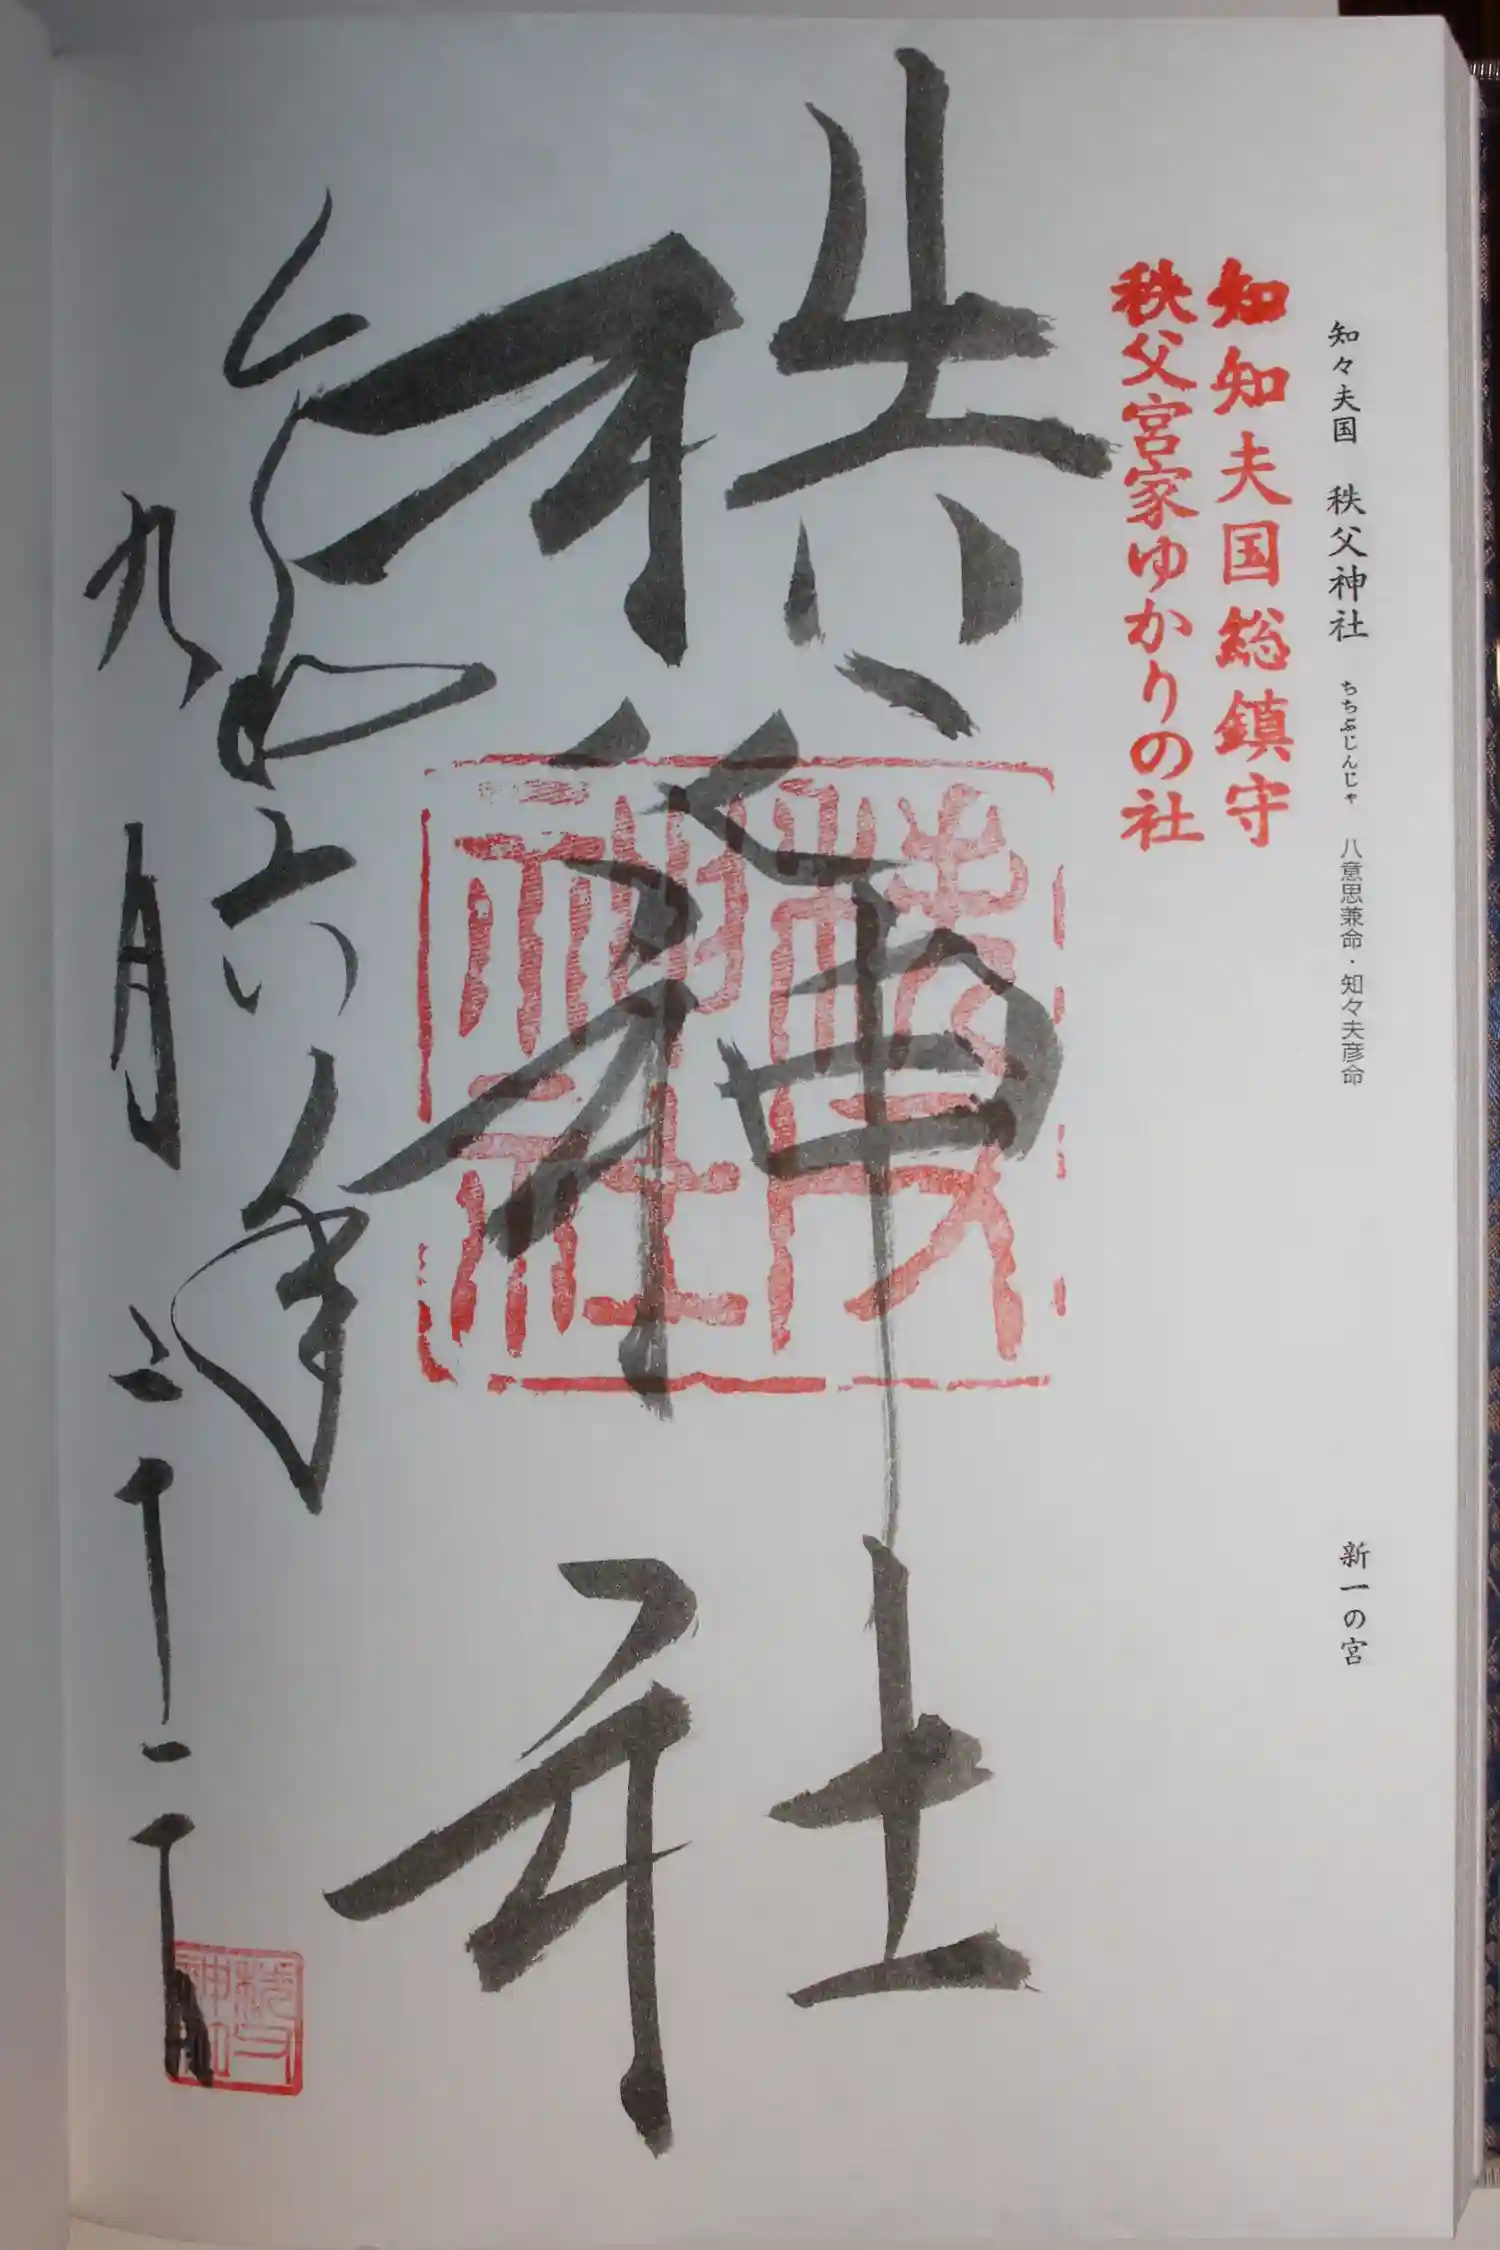 知々夫国 秩父神社 ちちぶじんじゃ 八意思兼命・知々夫彦命 新一の宮
知知夫国総鎮守
秩父宮家ゆかりの社
秩父神社
秩父神社
令和六年
九月二十一日
秩父神社